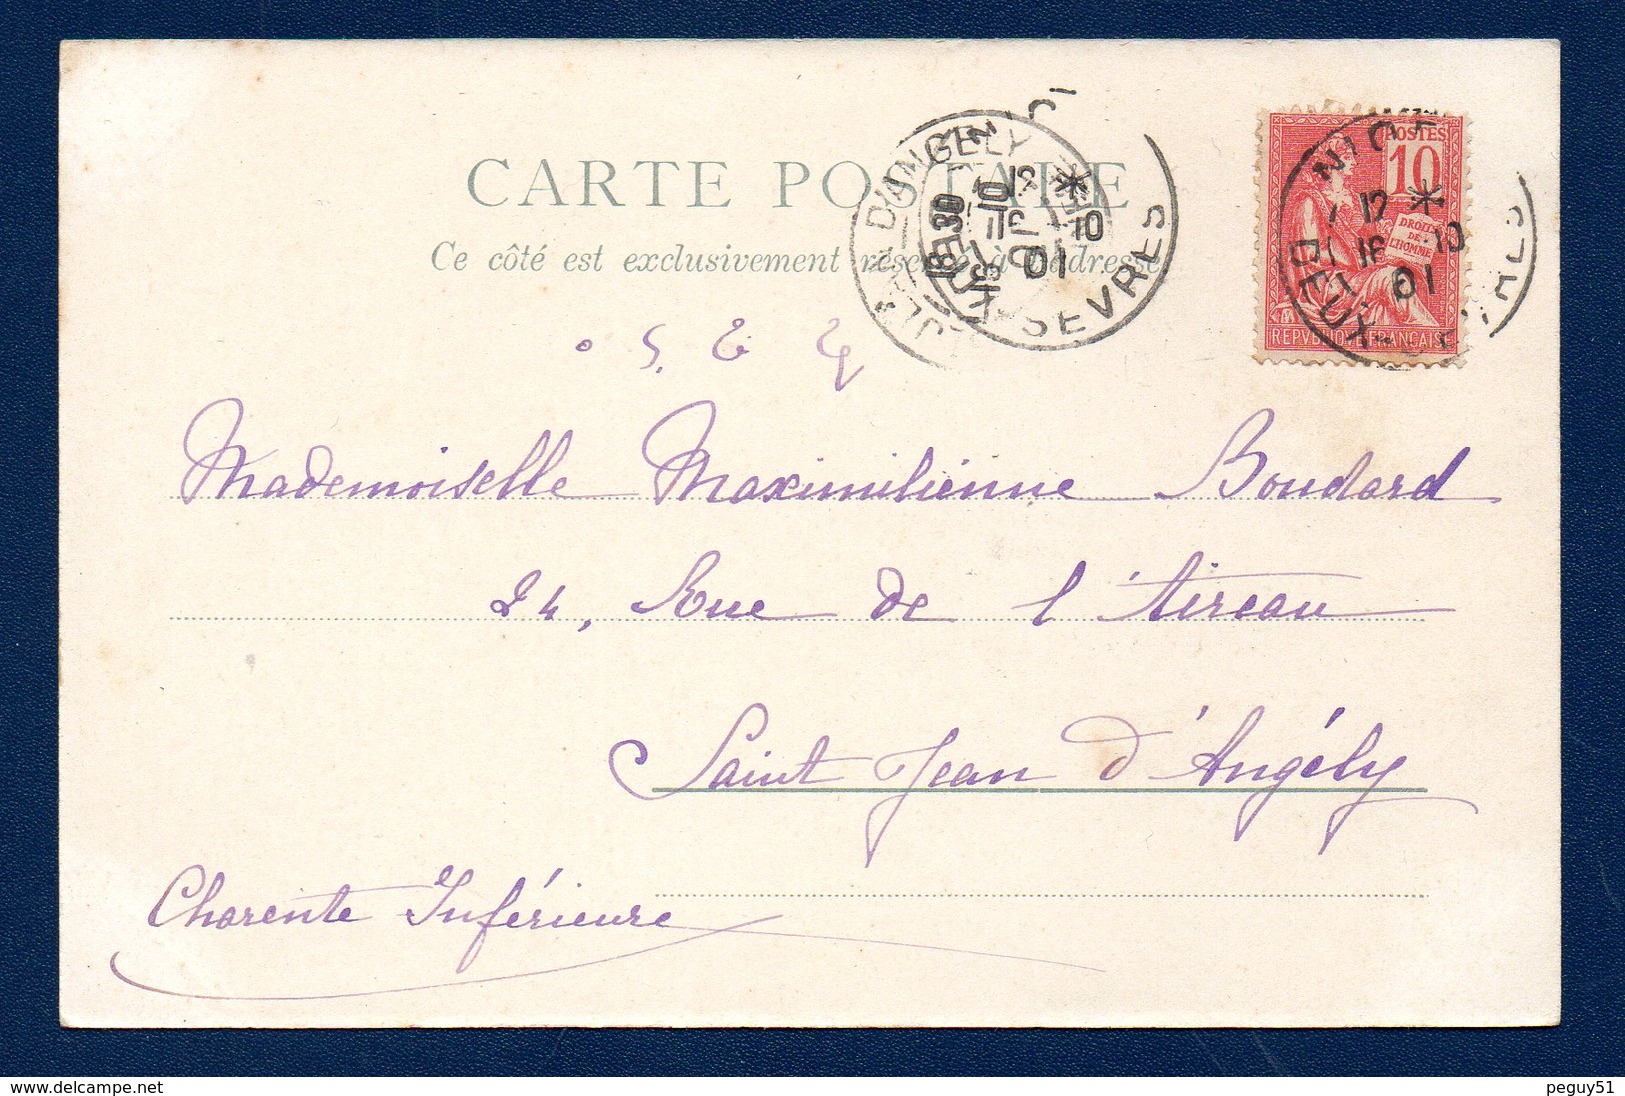 CARTE POSTALE
Ce côté est exclusivement réservé à l'adresse
D'ANGELY
18 30
16 - 10
01
12 *
16 10
01
DEUX-SEVRES
NIORT
12 *
16 10
01
DEUX-SEVRES
POSTES
10
DROITS
DE
L'HOMME
REPVBLIQVE FRANÇAISE
S. E
Mademoiselle Maximilienne Boudard
24, Rue de l'Aireau
Saint Jean d'Angély
Charente Inférieure
delcampe.net
peguy51